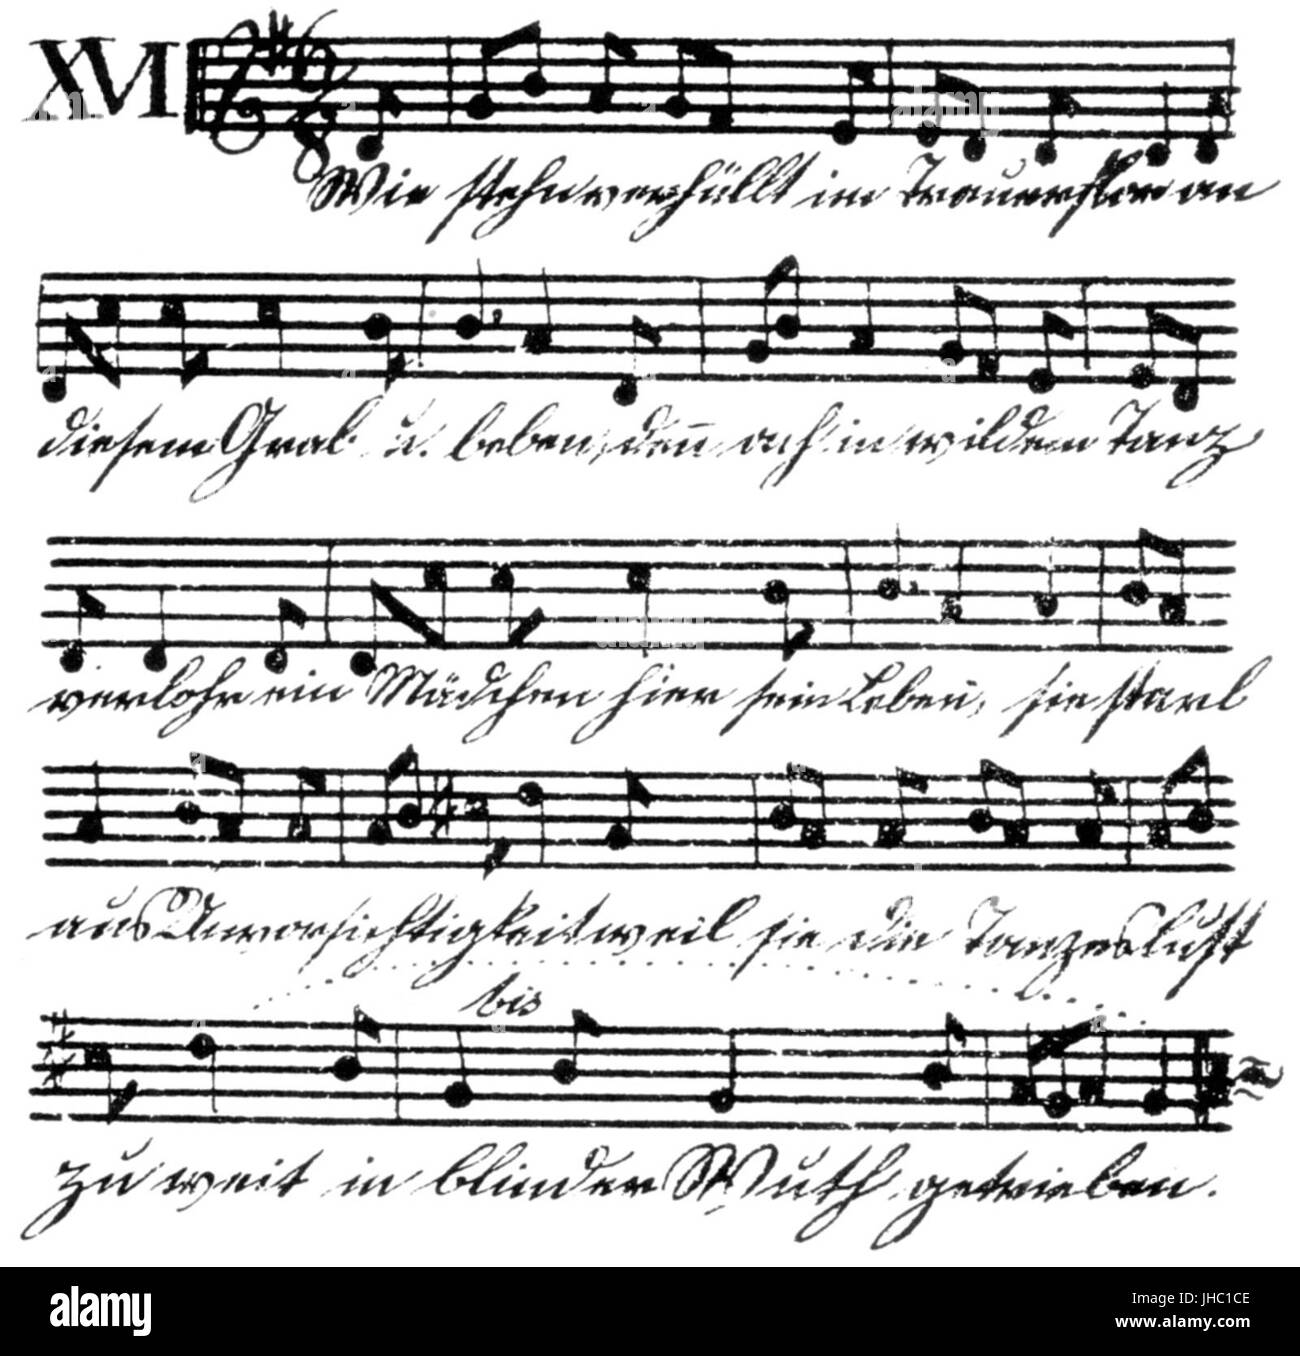 XVI
Wie stehn verhüllt im Trauerflor an
diesem Grab u. beben, deñ ach in wildem Tanz
verlohr ein Mädchen hier sein Leben, sie starb
aus Unvorsichtigkeit weil sie die Tanzeslust
bis
zu weit in blinder Wuth getrieben.
alamy
Image ID: JHC1CE
www.alamy.com